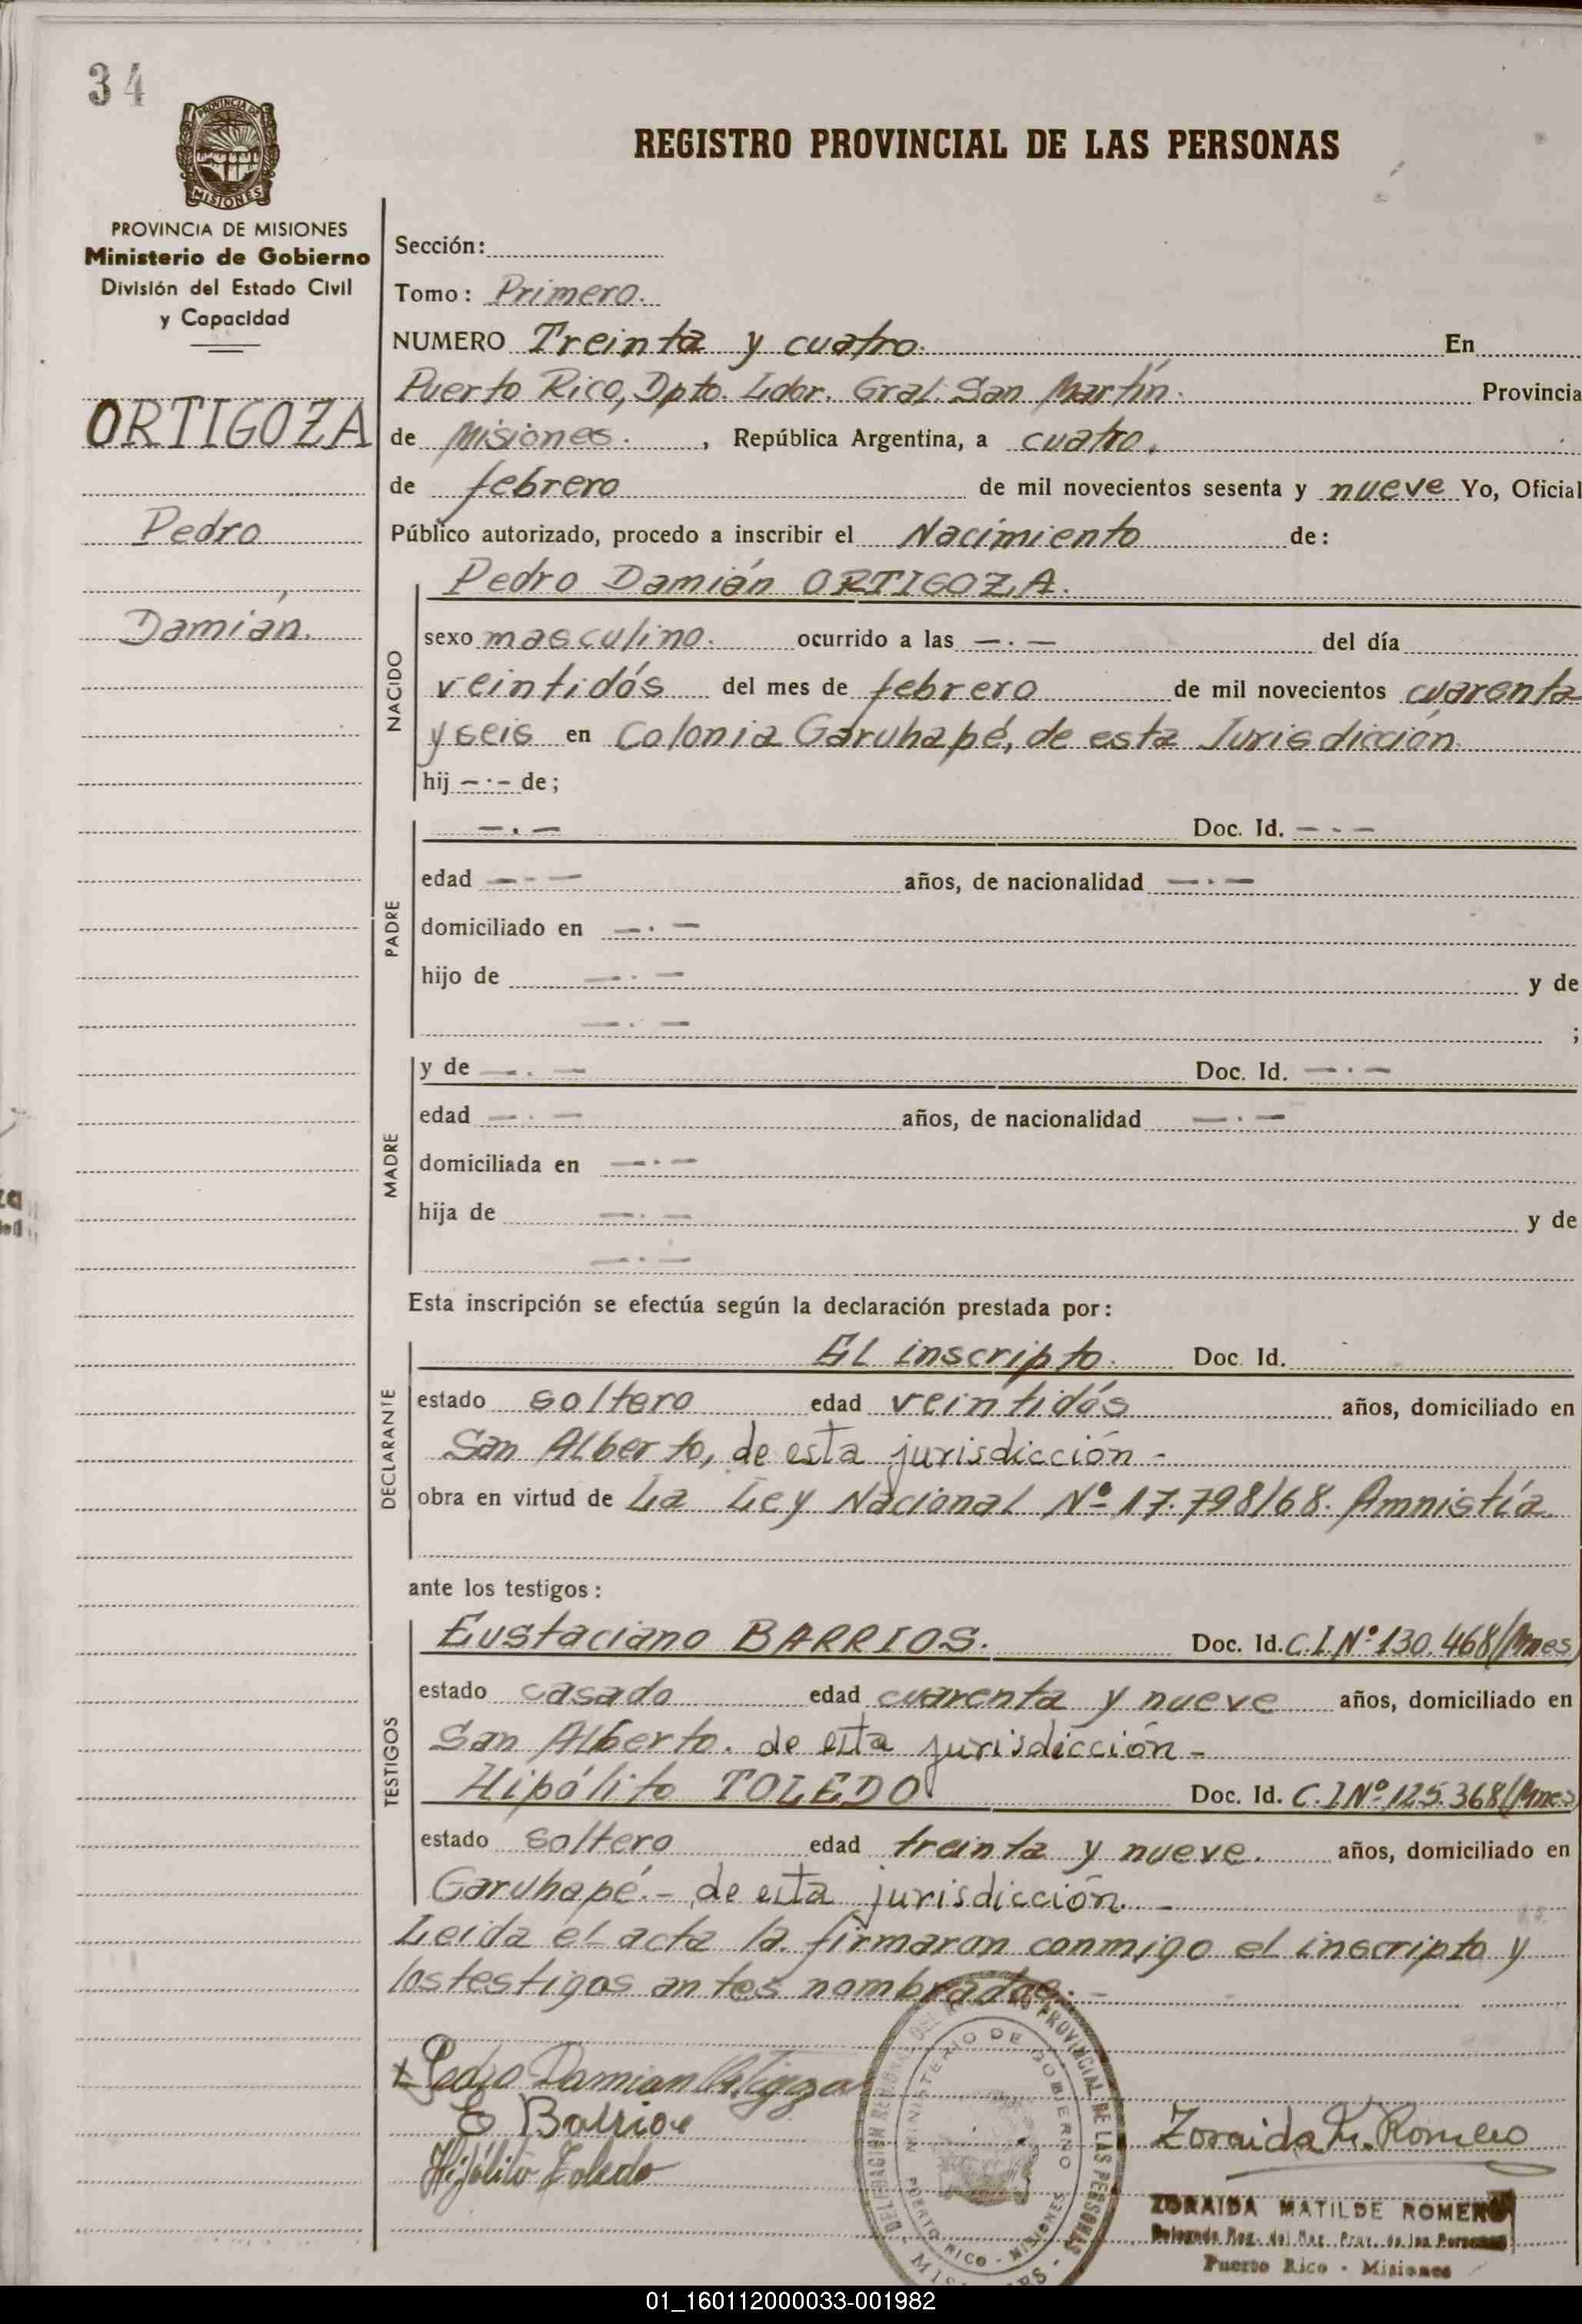 34
PROVINCIA DE
MISIONES
REGISTRO PROVINCIAL DE LAS PERSONAS
PROVINCIA DE MISIONES
Ministerio de Gobierno
División del Estado Civil
y Capacidad
ORTIGOZA
Pedro
Damián.
Sección:
Tomo: Primero.
NUMERO Treinta y cuatro. En
Puerto Rico, Dpto. Ldor. Gral. San Martín. Provincia
de Misiones. , República Argentina, a cuatro.
de febrero de mil novecientos sesenta y nueve Yo, Oficial
Público autorizado, procedo a inscribir el Nacimiento de:
NACIDO
Pedro Damián ORTIGOZA.
sexo masculino. ocurrido a las —.— del día
veintidós del mes de febrero de mil novecientos cuarenta
y seis en Colonia Garuhapé, de esta Jurisdicción.
hij —.— de;
PADRE
—.— Doc. Id. —.—
edad —.— años, de nacionalidad —.—
domiciliado en —.—
hijo de —.— y de
—.— ;
MADRE
y de —.— Doc. Id. —.—
edad —.— años, de nacionalidad —.—
domiciliada en —.—
hija de —.— y de
—.—
Esta inscripción se efectúa según la declaración prestada por:
DECLARANTE
El inscripto. Doc. Id.
estado soltero edad veintidós años, domiciliado en
San Alberto, de esta jurisdicción -
obra en virtud de La Ley Nacional Nº 17.798/68. Amnistía.
ante los testigos:
TESTIGOS
Eustaciano BARRIOS. Doc. Id. C.I.Nº 130.468/Mnes
estado casado edad cuarenta y nueve años, domiciliado en
San Alberto. de esta jurisdicción -
Hipólito TOLEDO Doc. Id. C.I Nº 125.368/Mnes
estado soltero edad treinta y nueve. años, domiciliado en
Garuhapé.- de esta jurisdicción. -
Leida el acta la firmaron conmigo el inscripto y
los testigos antes nombrados. -
x Pedro Damian Ortigoza
E Barrios
Hipólito Toledo
DELEGACION REGIONAL DEL PROVINCIAL DE LAS PERSONAS
MINISTERIO DE GOBIERNO
PUERTO RICO - MISIONES
Zoraida M. Romero
ZORAIDA MATILDE ROMERO
Delegada Reg. del Reg. Prov. de las Personas
Puerto Rico - Misiones
01_160112000033-001982